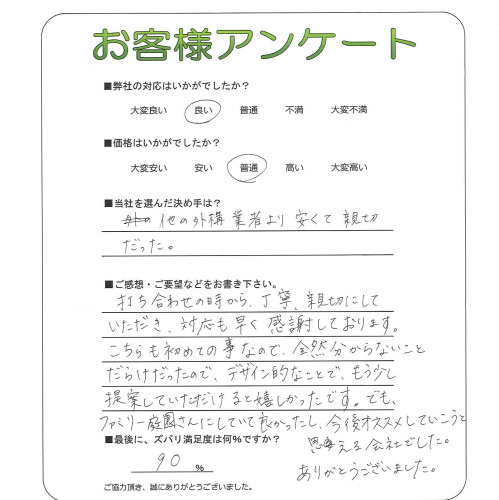 お客様アンケート
■弊社の対応はいかがでしたか？
大変良い 良い 普通 不満 大変不満
■価格はいかがでしたか？
大変安い 安い 普通 高い 大変高い
■当社を選んだ決め手は？
他の外構業者より安くて親切
だった。
■ご感想・ご要望などをお書き下さい。
打ち合わせの時から、丁寧、親切にして
いただき、対応も早く感謝しております。
こちらも初めての事なので、全然分からないこと
だらけだったので、デザイン的なことで、もう少し
提案していただけると嬉しかったです。でも、
ファミリー庭園さんにしていて良かったし、今後オススメしていこうと
思える会社でした。
ありがとうございました。
■最後に、ズバリ満足度は何％ですか？
90 ％
ご協力頂き、誠にありがとうございました。